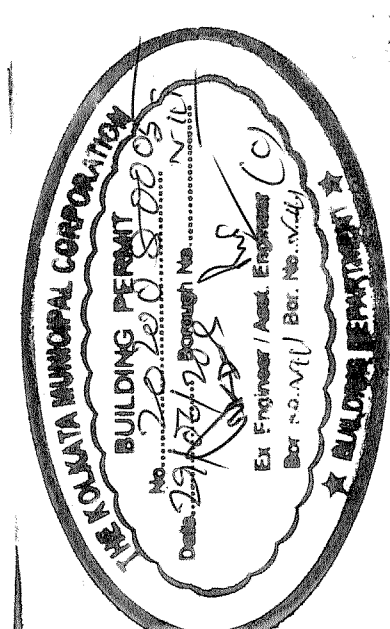 THE KOLKATA MUNICIPAL CORPORATION
BUILDING PERMIT
No. 2020080003
Date. 29/ Borough No. VIII
Ex Engineer / Asst. Engineer (C)
Bor No. VIII Bor. No.
★ BUILDING DEPARTMENT ★